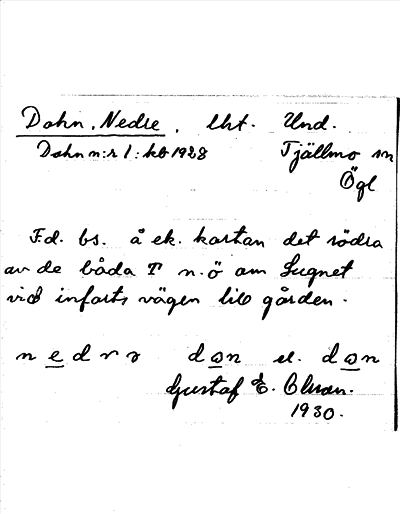 Dohn, Nedre, lht. Und.
Dohn n:r 1: kb 1928 Tjällmo sn
Ögl
F.d. bs. å ek. kartan det södra
av de båda T n.ö om Lugnet
vid infartsvägen till gården.
n e d r ə d ɷ n el. d ɷ n
Gustaf E. Olsson.
1930.